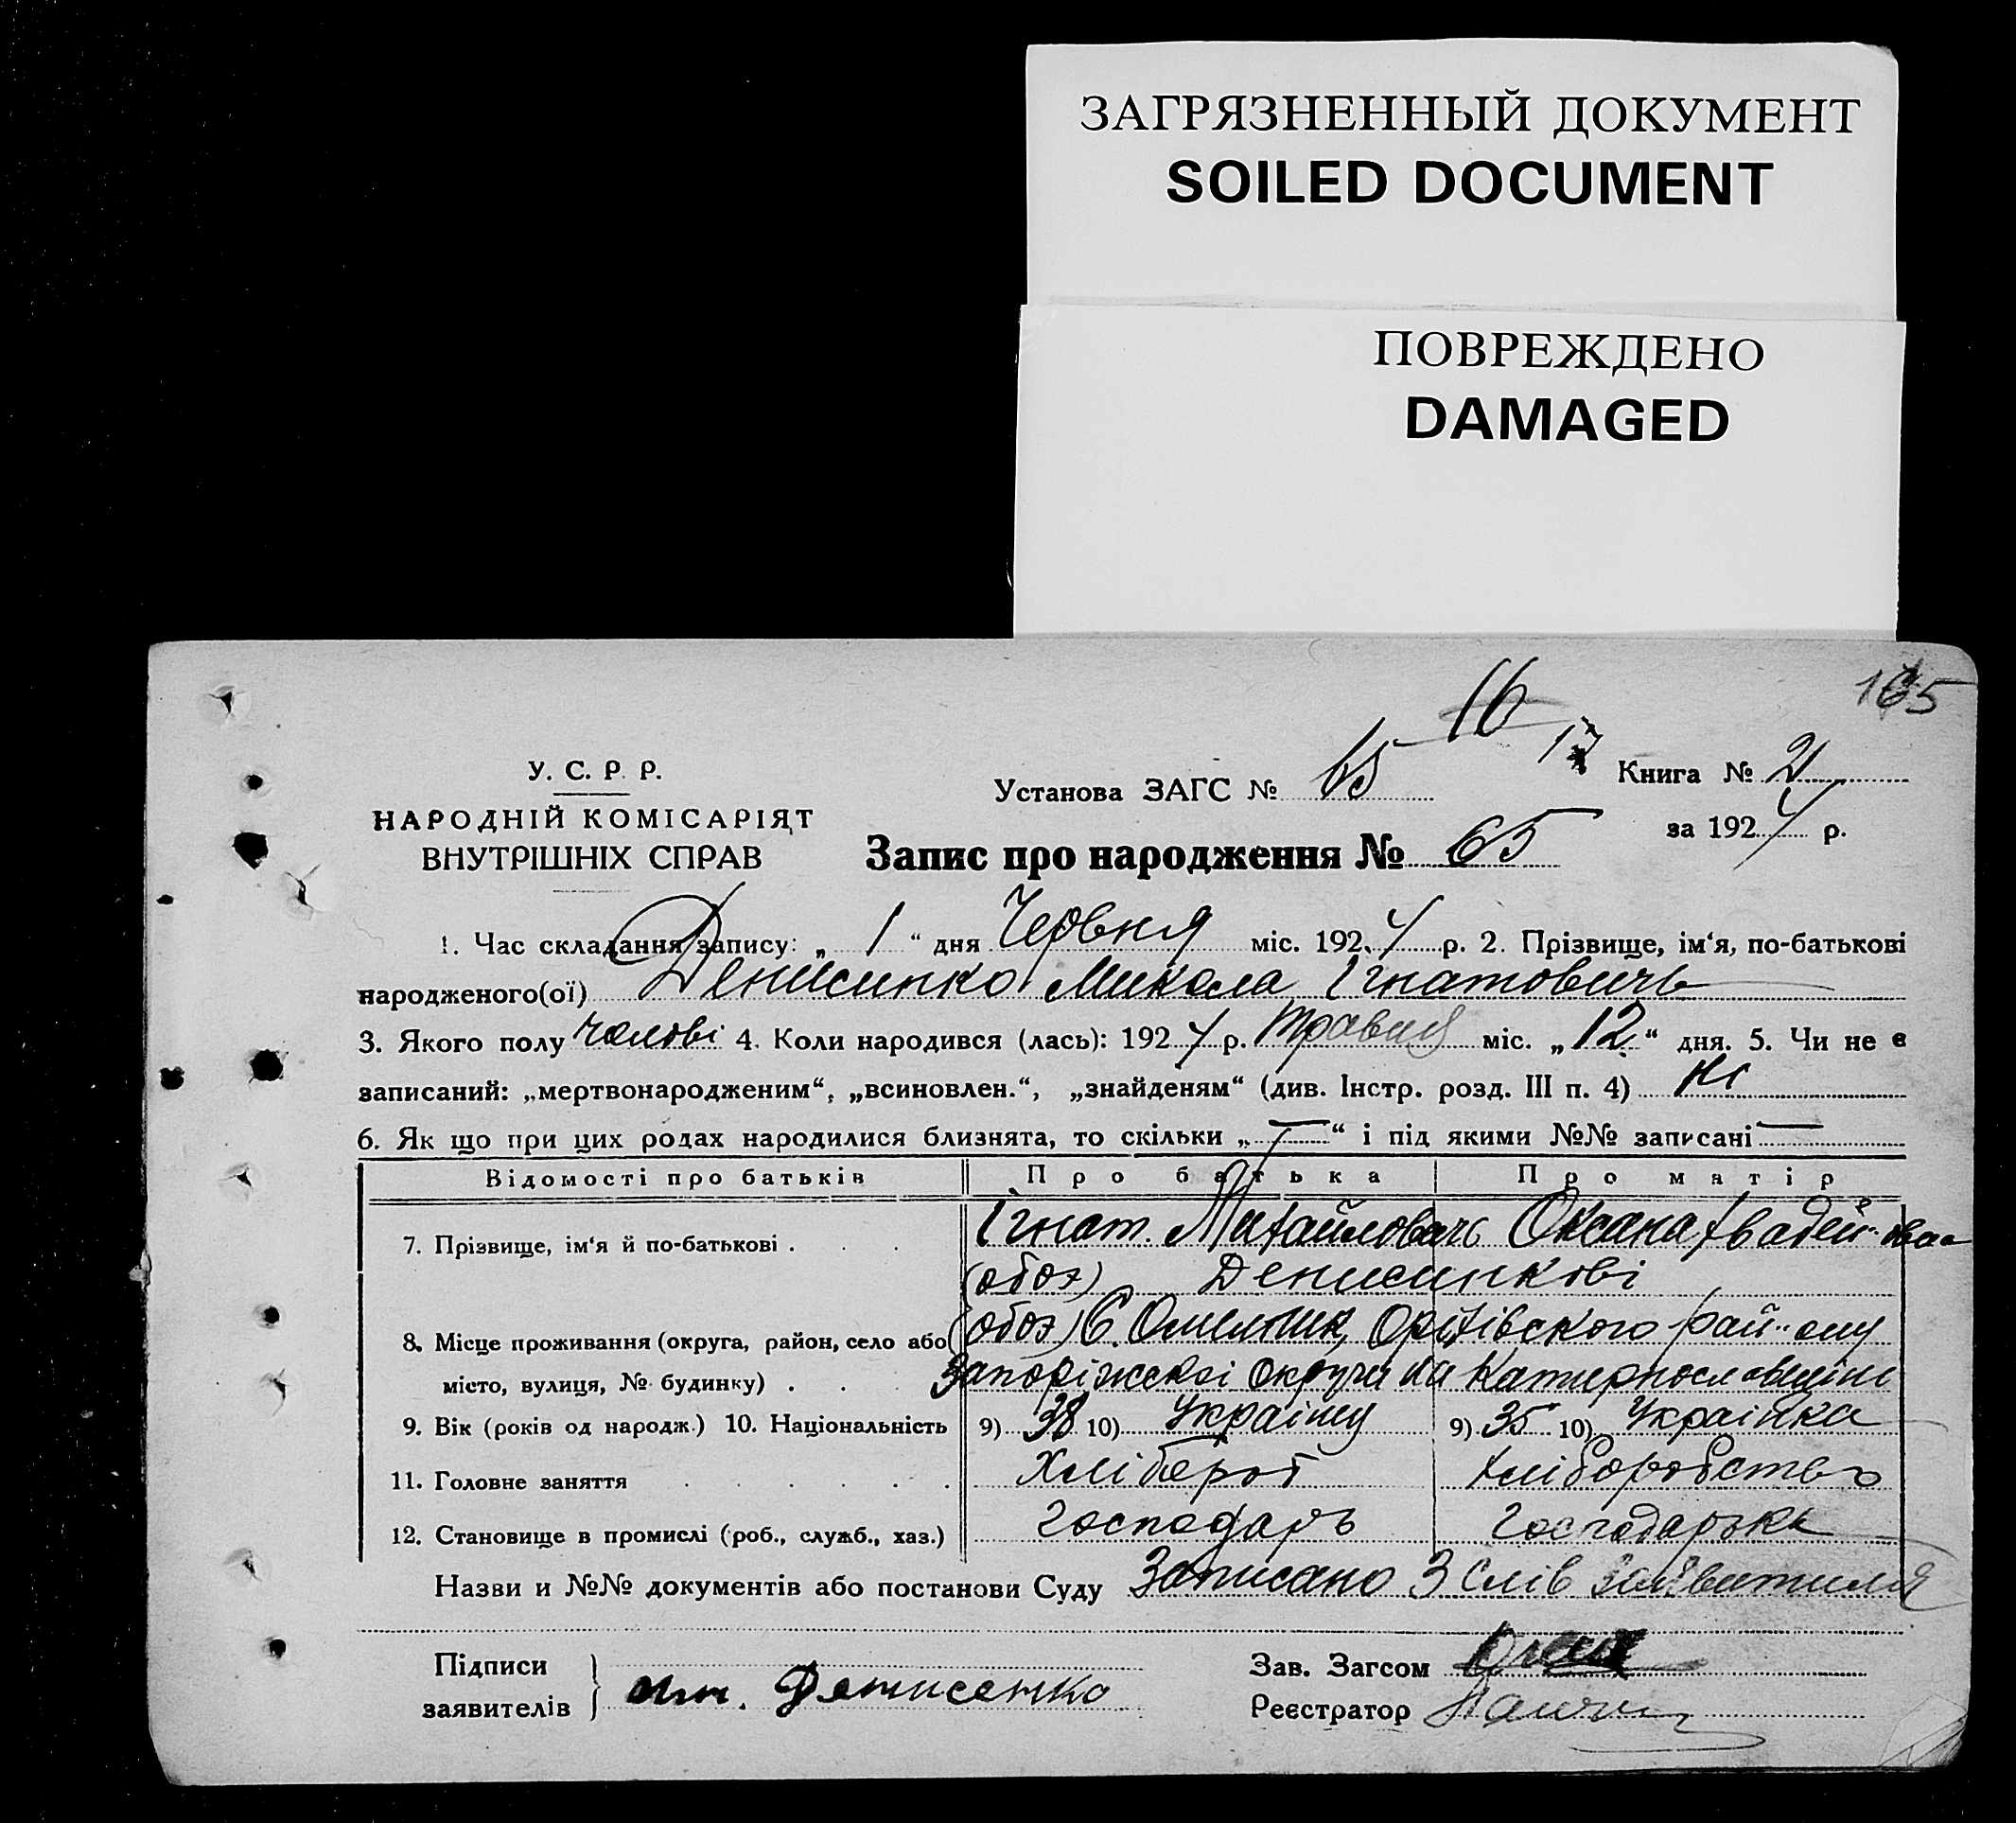 ЗАГРЯЗНЕННЫЙ ДОКУМЕНТ
SOILED DOCUMENT
ПОВРЕЖДЕНО
DAMAGED
16
165
17
У. С. Р. Р.
НАРОДНІЙ КОМІСАРІЯТ
ВНУТРІШНІХ СПРАВ
Установа ЗАГС № 65
Книга № 2
за 1924 р.
Запис про народження № 65
1. Час складання запису: „ 1 “ дня Червня міс. 1924 р. 2. Прізвище, ім‘я, по-батькові
народженого(ої) Денисинко Микола Ігнатовичь
3. Якого полу чолові 4. Коли народився (лась): 1924 р. Травня міс. „ 12 “ дня. 5. Чи не є
записаний: „мертвонародженим“, „всиновлен.“, „знайденям“ (див. Інстр. розд. III п. 4) Ні
6. Як що при цих родах народилися близнята, то скільки „ — “ і під якими №№ записані —
Відомості про батьків Про батька Про матір
7. Прізвище, ім‘я й по-батькові . . . Ігнат Михайловичь Оксана
(обох) Денисинкові
8. Місце проживання (округа, район, село або (обох) С. Омельник, Оріхівского рай-ону
місто, вулиця, № будинку) . . . Запоріжскоі Округи на Катернославщіні
9. Вік (років од народж.) 10. Національність 9) 38 10) Украінец 9) 35 10) Украінка
11. Головне заняття . . . . . . Хлібороб Хліборобство
12. Становище в промислі (роб., служб., хаз.) Господарь Господарька
Назви и №№ документів або постанови Суду Записано З Слів Заявителя
Підписи
заявителів } Денисенко
Зав. Загсом
Реєстратор